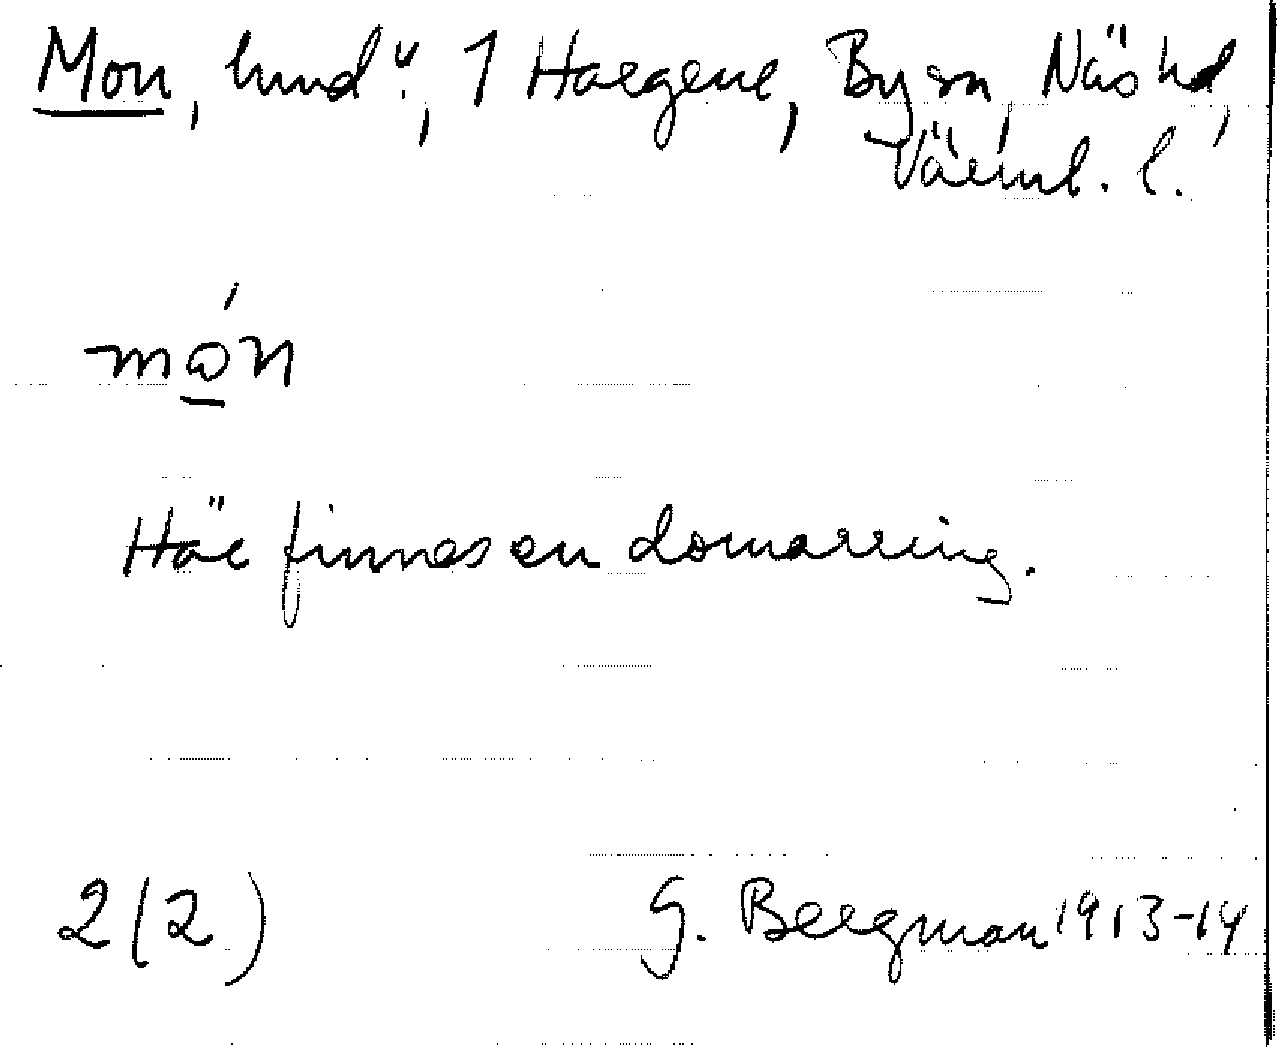 Mon, hmd?, 1 Haegene, By sn, Näs hd,
Värml. l.
mǫ́n
Här finnes en domarring.
2(2)
G. Bergman 1913-14